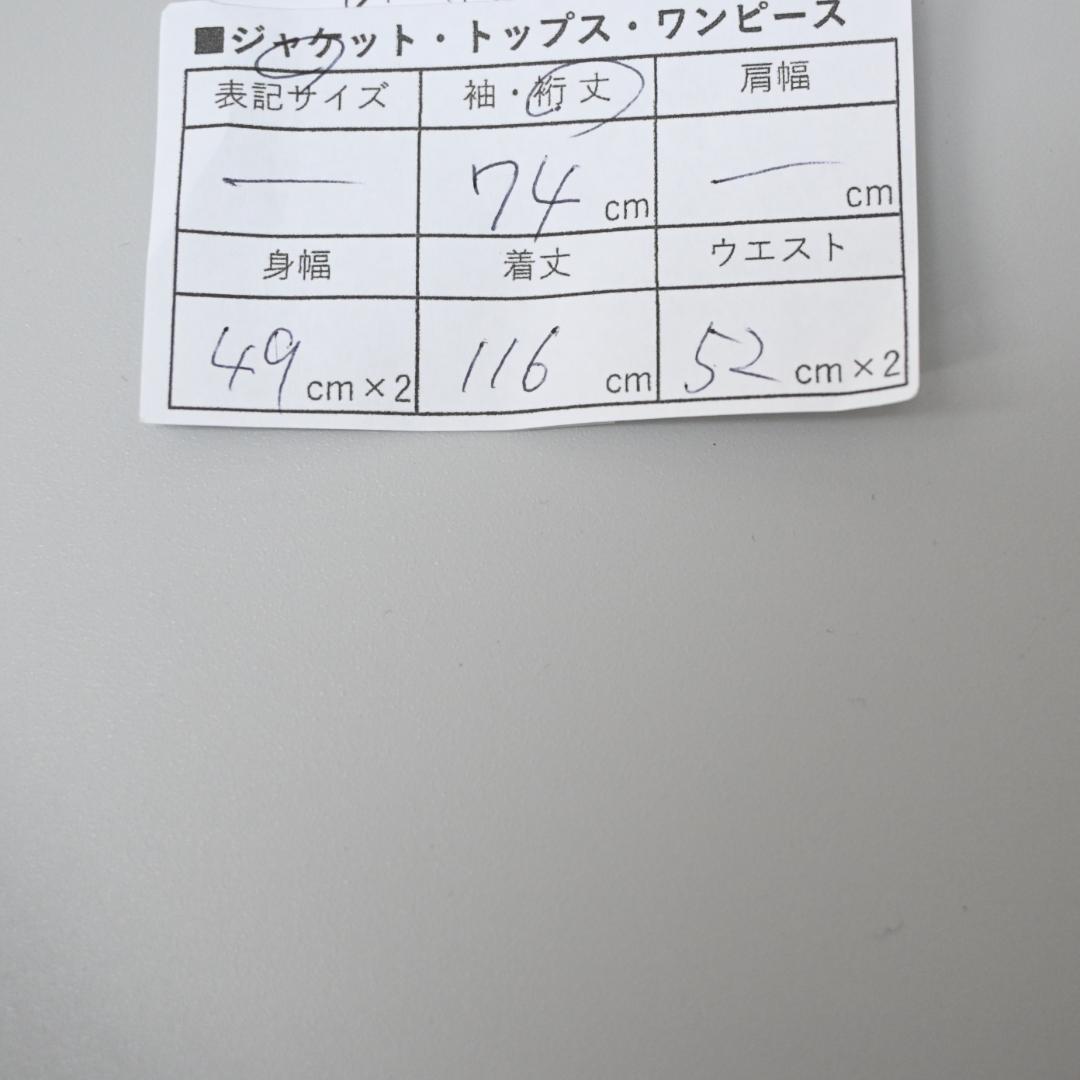 ■ジャケット・トップス・ワンピース
表記サイズ 袖・裄丈 肩幅
— 74 cm — cm
身幅 着丈 ウエスト
49 cm×2 116 cm 52 cm×2